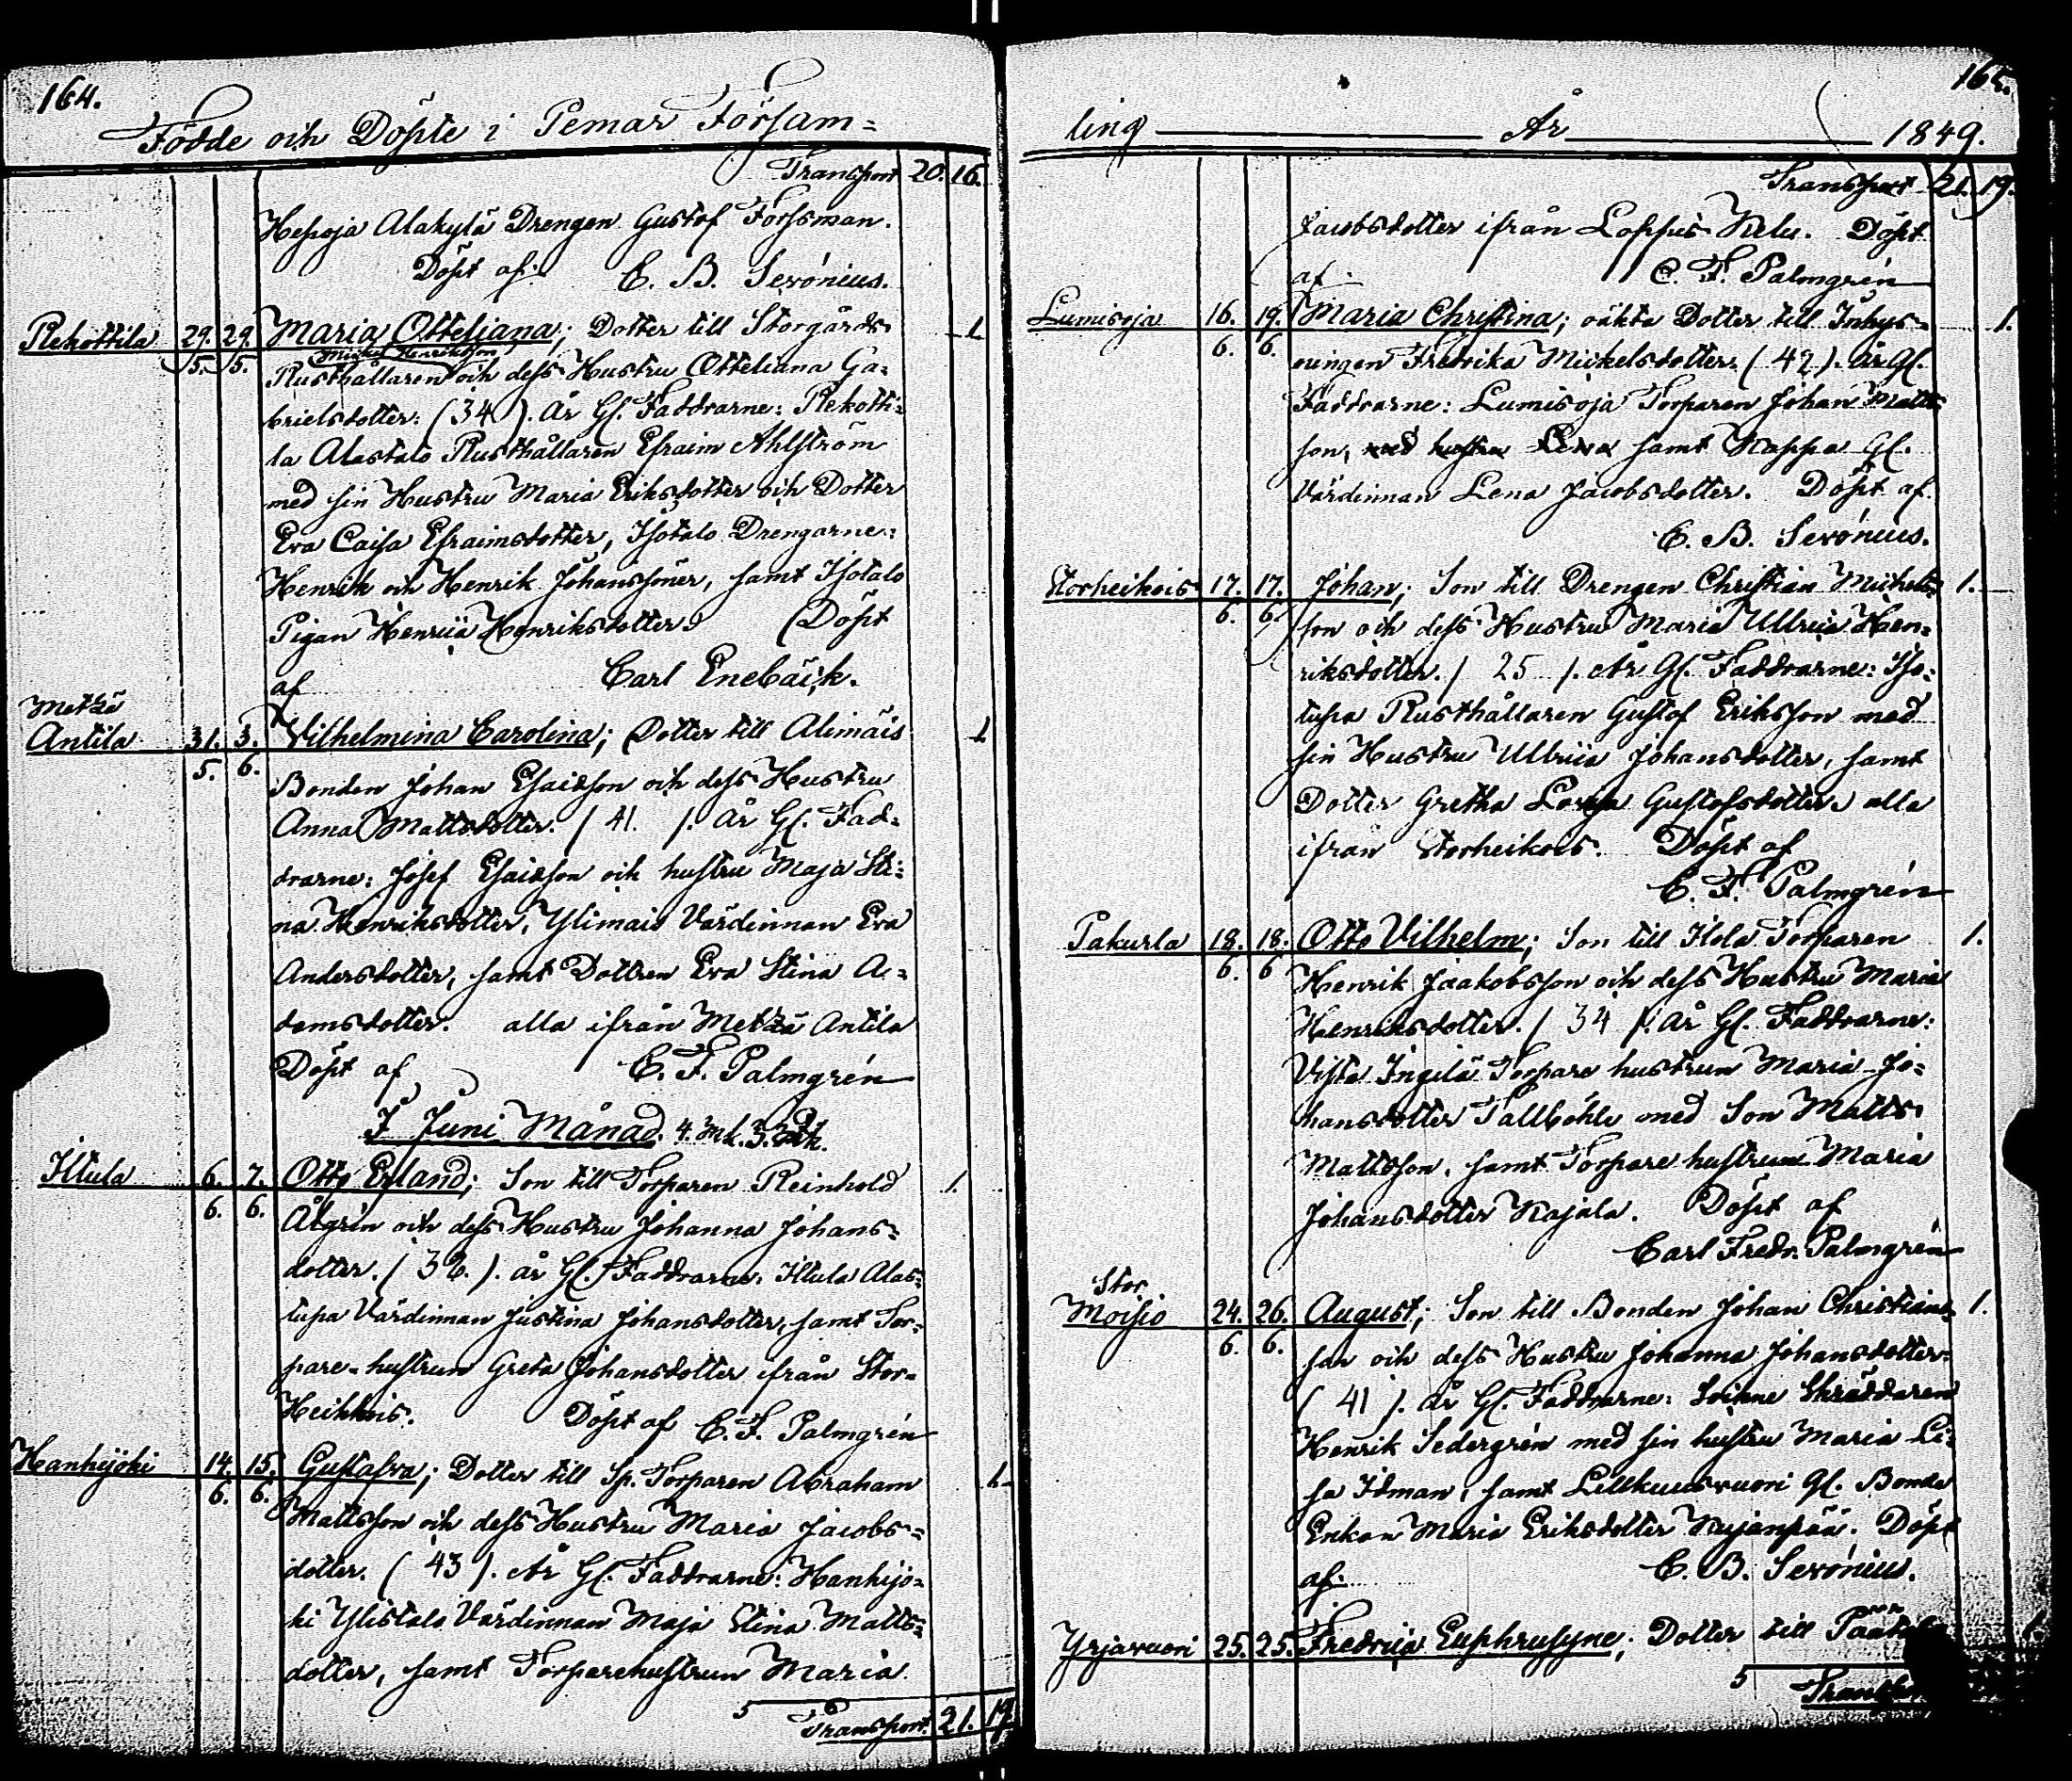 164.
Födde och Döpte i Pemar Försam=
Transport 20. 16.
Hepoja Alakylä Drengen Gustof Forssman.
Döpt af: C. B. Serónius.
Rekottila 29. 29. Maria Otteliana; Dotter till Storgårds 1
5. 5. Michel Henriksson
Rusthållaren och dess Hustru Otteliana Ga=
brielsdotter: (34). År Gl. Faddrarne: Rekotti=
la Alastalo Rusthållaren Efraim Ahlström
med sin Hustru Maria Eriksdotter och Dotter
Eva Caisa Efraimsdotter, Isotalo Drengarne:
Henrik och Henrik Johanssöner, samt Isotalo
Pigan Henrica Henriksdotter. Döpt
af Carl Enebäck.
Metzä
Antila 31. 3. Vilhelmina Carolina; Dotter till Alimäis 1
5. 6.
Bonden Johan Esaiasson och dess Hustru
Anna Mattsdotter. (41.). År Gl. Fad=
drarne: Josef Esaiasson och hustru Maja Sti=
na Henriksdotter, Ylimais Värdinnan Eva
Andersdotter, samt Dottren Eva Stina A=
damsdotter. alla ifrån Metzä Antila
Döpt af C. F. Palmgrén
I Juni Månad. 4. Mk. 3.
Iltula 6. 7. Otto Erland; Son till Torparen Reinhold 1.
6. 6.
Algrén och dess Hustru Johanna Johans=
dotter. (32.). år Gl. Faddrarne: Iltula Alas=
tupa Värdinnan Justina Johansdotter, samt Tor=
pare-hustrun Greta Johansdotter ifrån Stor=
Heikkois. Döpt af C. F. Palmgrén
Hanhijoki 14. 15. Gustafva; Dotter till Sp. Torparen Abraham 1.
6. 6.
Mattsson och dess Hustru Maria Jacobs=
dotter. (43). År Gl. Faddrarne: Hanhijo=
ki Ylistalo Värdinnan Maja Stina Matts=
dotter, samt Torparehustrun Maria
5 6
Transport. 21. 19
165.
ling År 1849.
Transport 21. 19.
Jacobsdotter ifrån Loppis Kelu. Döpt
af C. F. Palmgrén
Lumisoja 16. 19. Maria Christina; oäkta Dotter till Inhys= 1.
6. 6.
ningen Fredrika Mickelsdotter. (42). år Gl.
Faddrarne: Lumisoja Torparen Johan Matts=
son, med hustru Lena samt Kappa Gl.
Värdinnan Lena Jacobsdotter. Döpt af
C. B. Serónius.
Storheikois 17. 17. Johan; Son till Drengen Christian Michels= 1.
6. 6.
son och dess Hustru Maria Ullrica Hen=
riksdotter. (25). År Gl. Faddrarne: Iso=
tupa Rusthållaren Gustof Eriksson med
sin Hustru Ullrica Johansdotter, samt
Dotter Gretha Lovisa Gustofsdotter, alla
ifrån Storheikois. Döpt af
C. F. Palmgrén
Pakurla 18. 18. Otto Vilhelm; Son till Ilola Torparen 1.
6. 6
Henrik Jaakobsson och dess Hustru Maria
Henriksdotter. (34). år Gl. Faddrarne:
Vista Ingilä Torpare hustrun Maria Jo=
hansdotter Tallbohle med Son Matts
Mattsson, samt Torpare hustrun Maria
Johansdotter Kajala. Döpt af
Carl Fredr. Palmgrén
Stor
Moisio 24. 26. August; Son till Bonden Johan Christians= 1.
6. 6.
son och dess Hustru Johanna Johansdotter.
(41). år Gl. Faddrarne: Soinne Skräddaren
Henrik Sedergrén med sin hustru Maria Li=
sa Idman, samt Lillkuusvuori Gl. Bonde
Enkan Maria Eriksdotter Kujanpää. Döpt
af: C. B. Serónius.
Yrjävuori 25. 25. Fredrica Euphrusyne; Dotter till 1.
5